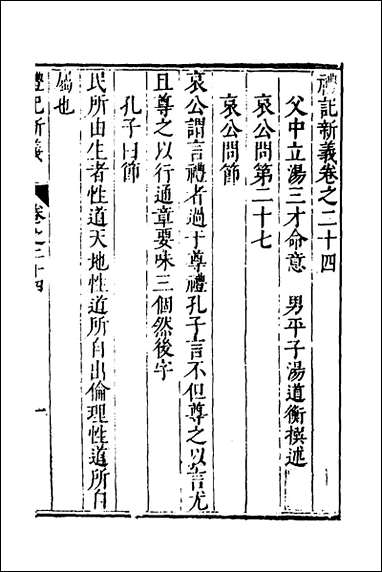 禮記新義卷之二十四
父中立湯三才命意　男平子湯道衡撰述
哀公問第二十七
哀公問節
哀公謂言禮者過于尊禮孔子言不但尊之以言尤
且尊之以行通章要味三個然後字
孔子曰節
民所由生者性道天地性道所自出倫理性道所自
屬也
禮記新義　卷之二十四　一